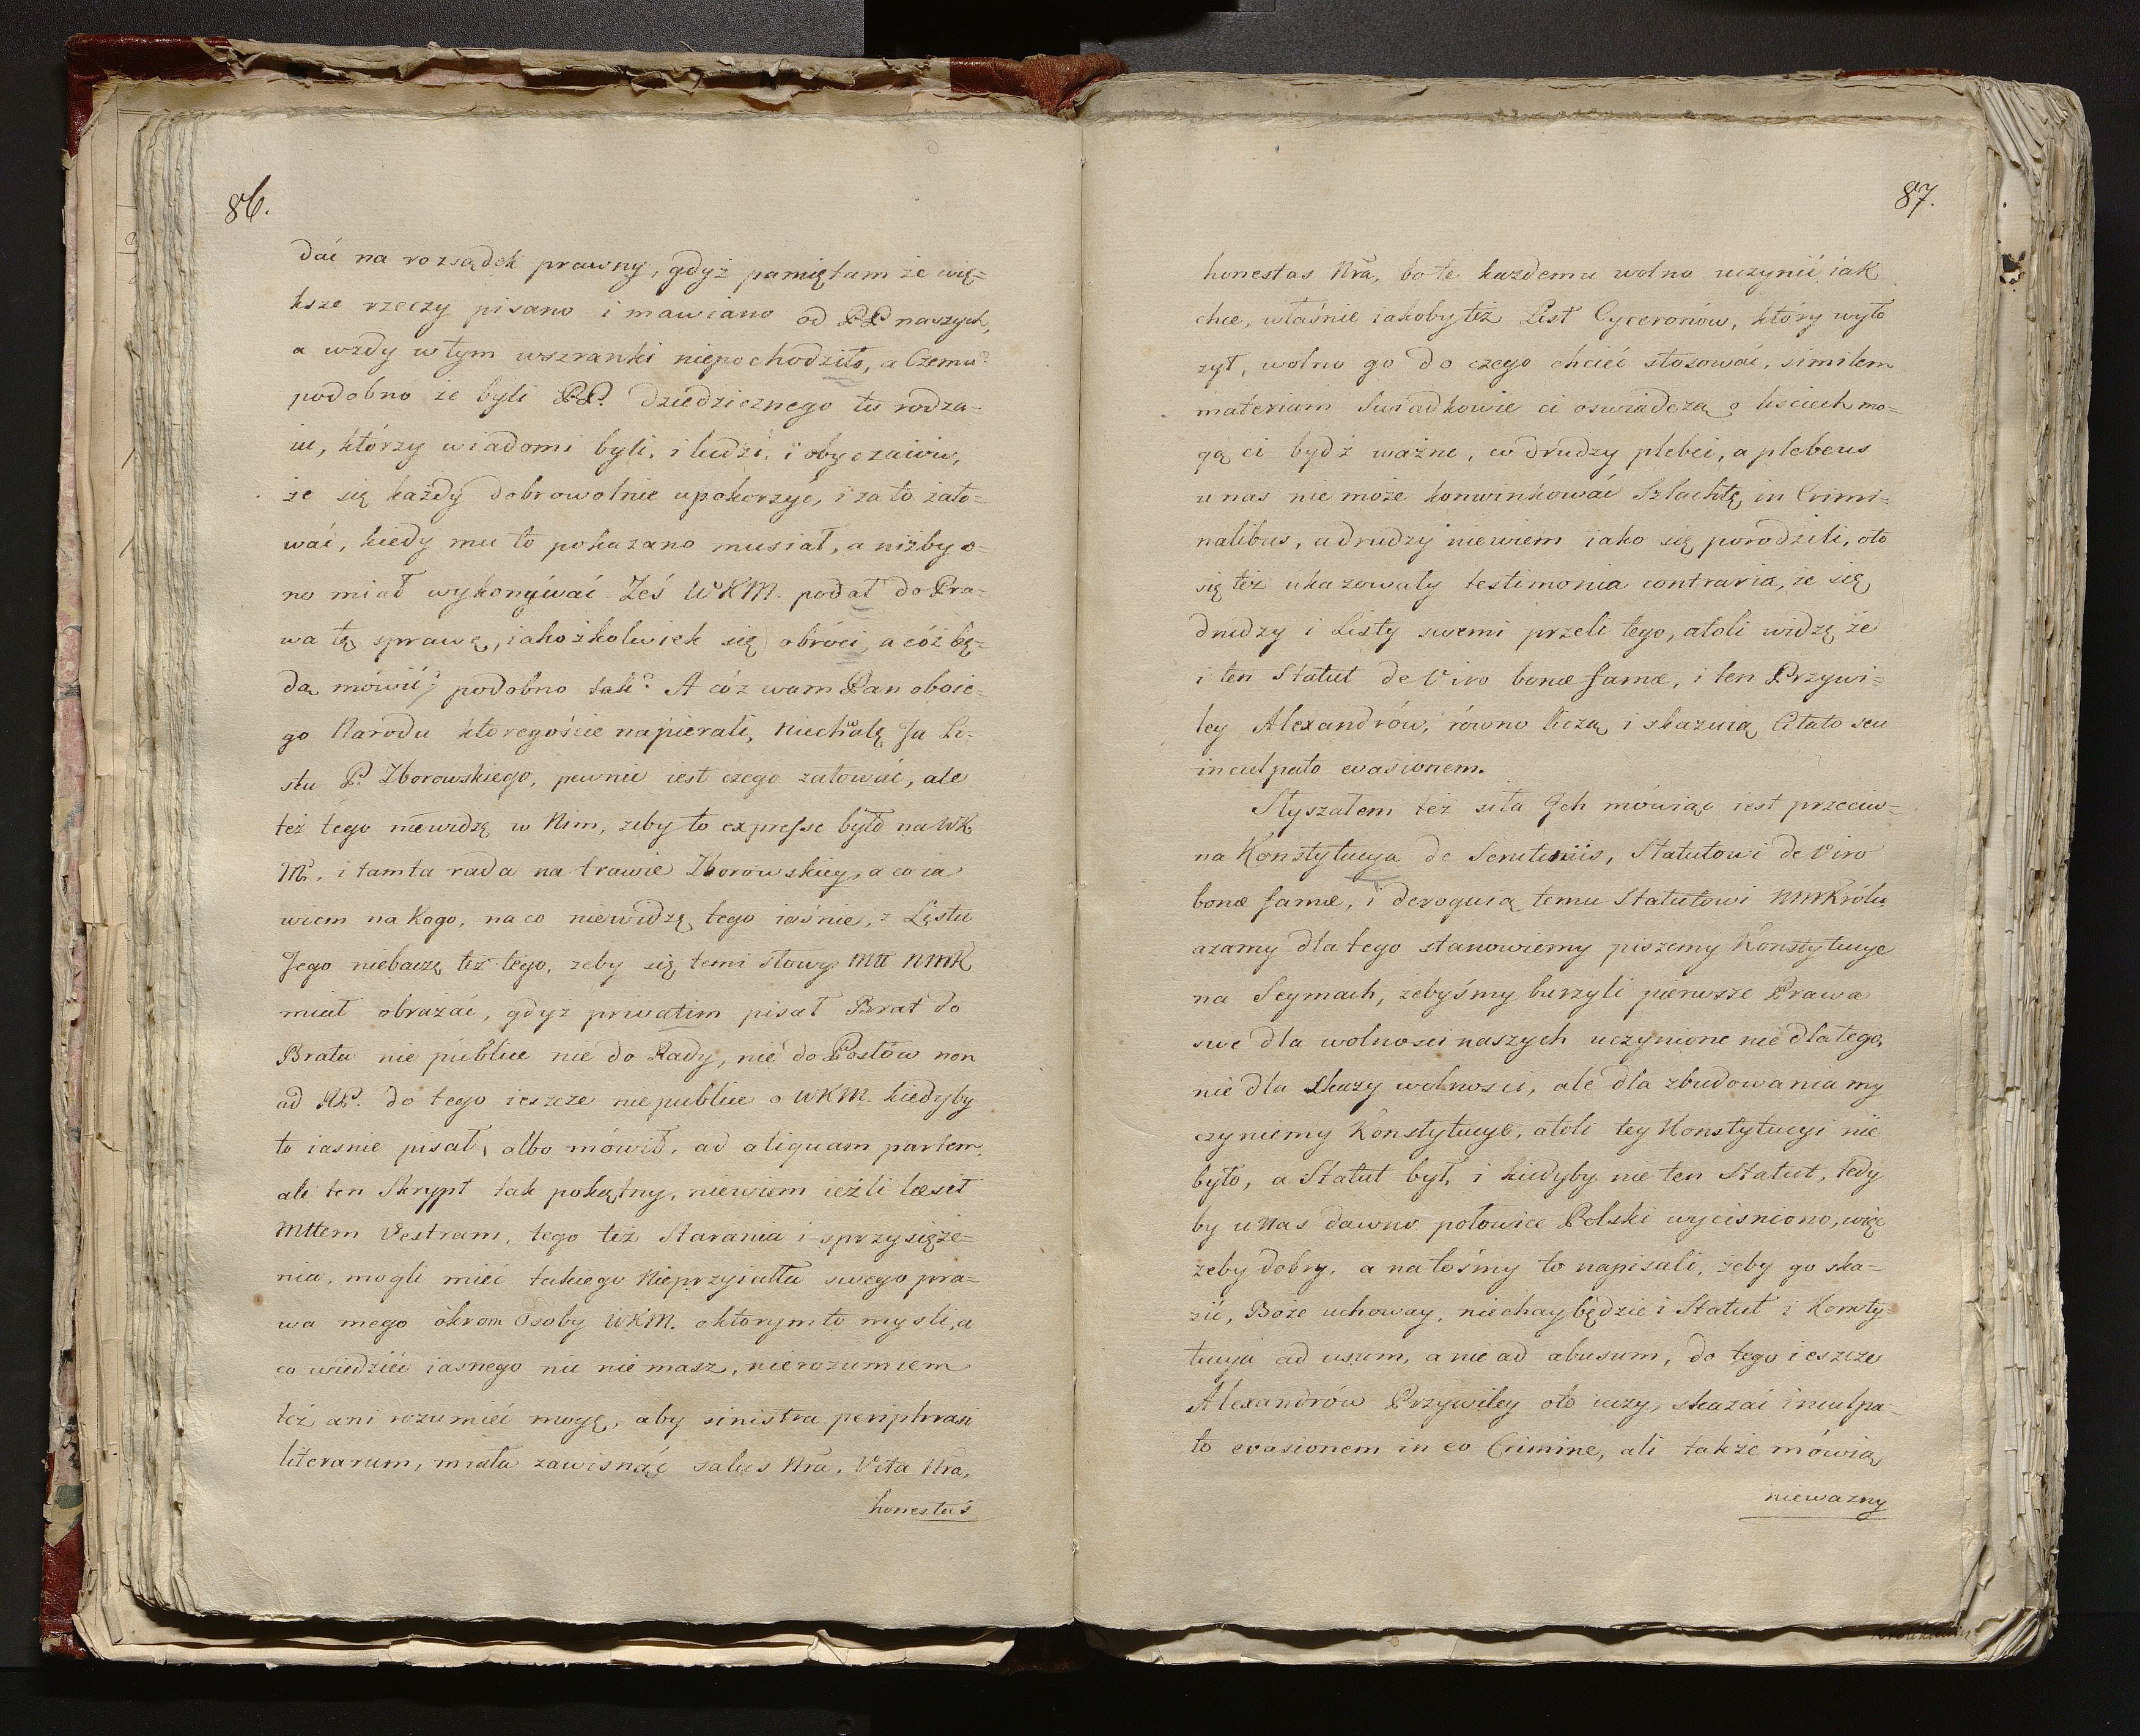 86.
dać na rozsądek prawny, gdyż pamiętam że wię=
ksze rzeczy pisano i mawiano od PP naszych,
a wżdy w tym wszranki niepochodziło, a Czemu?
podobno że byli PP. dziedzicznego tu rodza=
iu, którzy wiadomi byli, i ludzi, i obyczaiów,
że się każdy dobrowolnie upokorzyć, i za to żało=
wać, kiedy mu to pokazano musiał, a niżby o=
no miał wykonywać. Żeś WKM. podał do Pra=
wa tę sprawę, iakożkolwiek się obróci, a cóż bę=
dą mówić? podobno tak? A cóż wam Pan oboie=
go Narodu któregoście napierali, niechalę Ja Li=
stu P. Zborowskiego, pewnie iest czego żałować, ale
też tego niewidzę w Nim, żeby to expresse było na WK
M. i tamta rada na trawie Zborowskiey, a co ia
wiem na Kogo, na co niewidzę tego iaśnie, z Listu
Jego niebaczę też tego, żeby się temi słowy Mtt NMK
miał obrażać, gdyż privatim pisał Brat do
Brata nie publice nie do Rady, nie do Posłów non
ad RP. do tego ieszcze nie publice o WKM. kiedyby
to iasnie pisał, albo mówił, ad aliquam partem,
ale ten Skrypt tak pokątny, niewiem ieźli læsit
Mttem Vestram, tego też Starania i sprzysięże=
nia, mogli mieć takiego Nieprzyiaciela swego pra=
wa mego okrom Osoby WKM. o którym to mysli, a
co wiedzieć iasnego nic nie masz, nierozumiem
też ani rozumieć mogę, aby sinistra periphrasi
literarum, miała zawisnąć salus Nra, Vita Nra,
honestas
87.
honestas Nra, bo te każdemu wolno uczynić iak
chce, właśnie iakoby też List Cyceronów, który wyło
żył, wolno go do czego chcieć stosować, similem
materiam Swiadkowie ci oswiadczą o liściech mo=
gą ci bydź ważne, co drudzy plebei, a plebeus
u nas nie może konwinkować Szlachtę in Crimi=
nalibus, a drudzy niewiem iako się porodzili, oto
się też ukazowały testimonia contraria, że się
drudzy i Listy swemi przeli tego, atoli widzę że
i ten Statut de Viro bonæ famæ, i ten Przywi=
ley Alexandrów, równo liczą i skazuią Citato seu
inculpato evasionem.
Słyszałem też siła Ich mówiąc iest przeciw=
na Konstytucya de Scrutiniis, Statutowi de Viro
bonæ famæ, i deroguią temu Statutowi NMKrólu
azamy dla tego stanowiemy piszemy Konstytucye
na Seymach, żebyśmy burzyli pierwsze Prawa
swe dla wolności naszych uczynione nie dlatego,
nie dla skazy wolności, ale dla zbudowania my
czyniemy Konstytucye, atoli tey Konstytucyi nie
było, a Statut był, i kiedyby nie ten Statut, tedy
by u Nas dawno połowice Polski wycisniono, więc
żeby dobry, a natośmy to napisali, żeby go ska=
zić, Boże uchoway, niechay będzie i Statut i Konsty=
tucya ad usum, a nie ad abusum, do tego ieszcze
Alexandrów Przywiley oto uczy, skazać inculpa=
to evasionem in eo Crimine, ali także mówią
nieważny